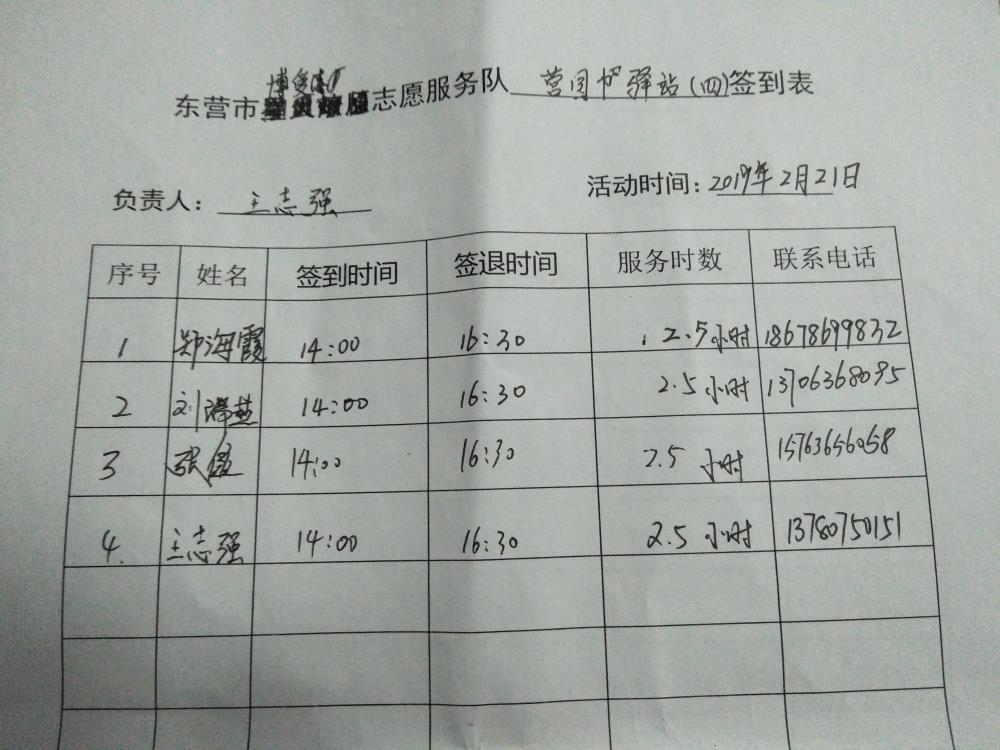 东营市博爱志愿服务队 营同书驿站(四)签到表
负责人: 王志强 活动时间: 2019年2月21日
序号 姓名 签到时间 签退时间 服务时数 联系电话
1 郑海霞 14:00 16:30 2.5小时 18678699832
2 刘 14:00 16:30 2.5小时 13706368095
3 张 14:00 16:30 2.5小时 15763656058
4. 王志强 14:00 16:30 2.5小时 13780750151